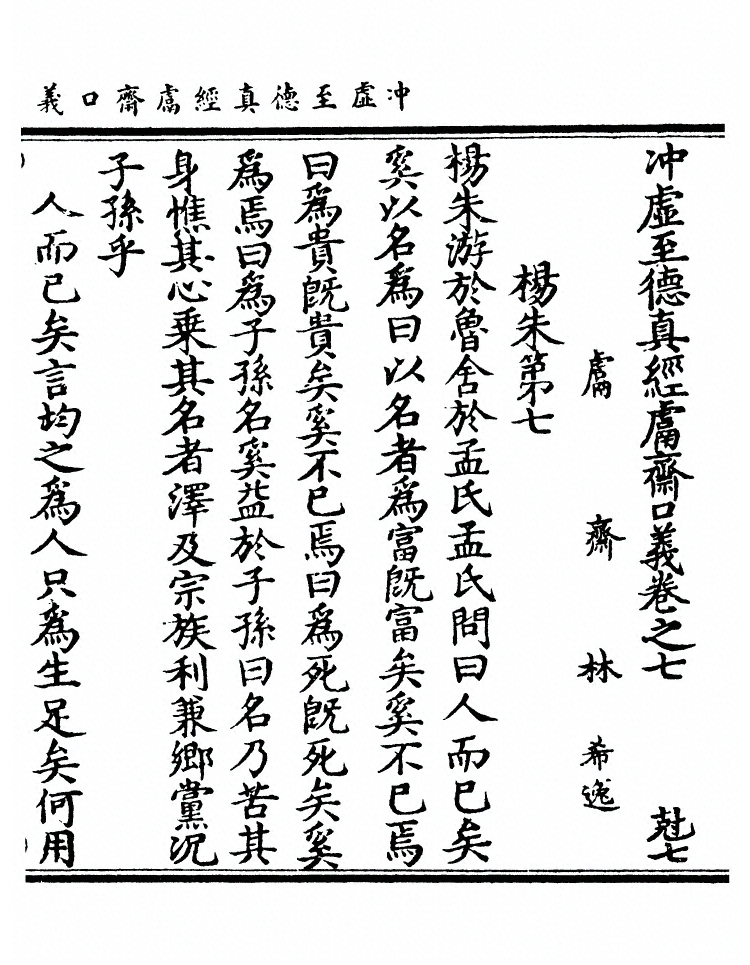 冲虛至德真經鬳齋口義
冲虛至德真經鬳齋口義卷之七 尅七
鬳齋林希逸
楊朱第七
楊朱游於魯舍於孟氏孟氏問曰人而已矣
奚以名爲曰以名者爲富既富矣奚不已焉
曰爲貴既貴矣奚不已焉曰爲死既死矣奚
爲焉曰爲子孫名奚益於子孫曰名乃苦其
身憔其心乘其名者澤及宗族利兼鄉黨況
子孫乎
人而已矣言均之爲人只爲生足矣何用